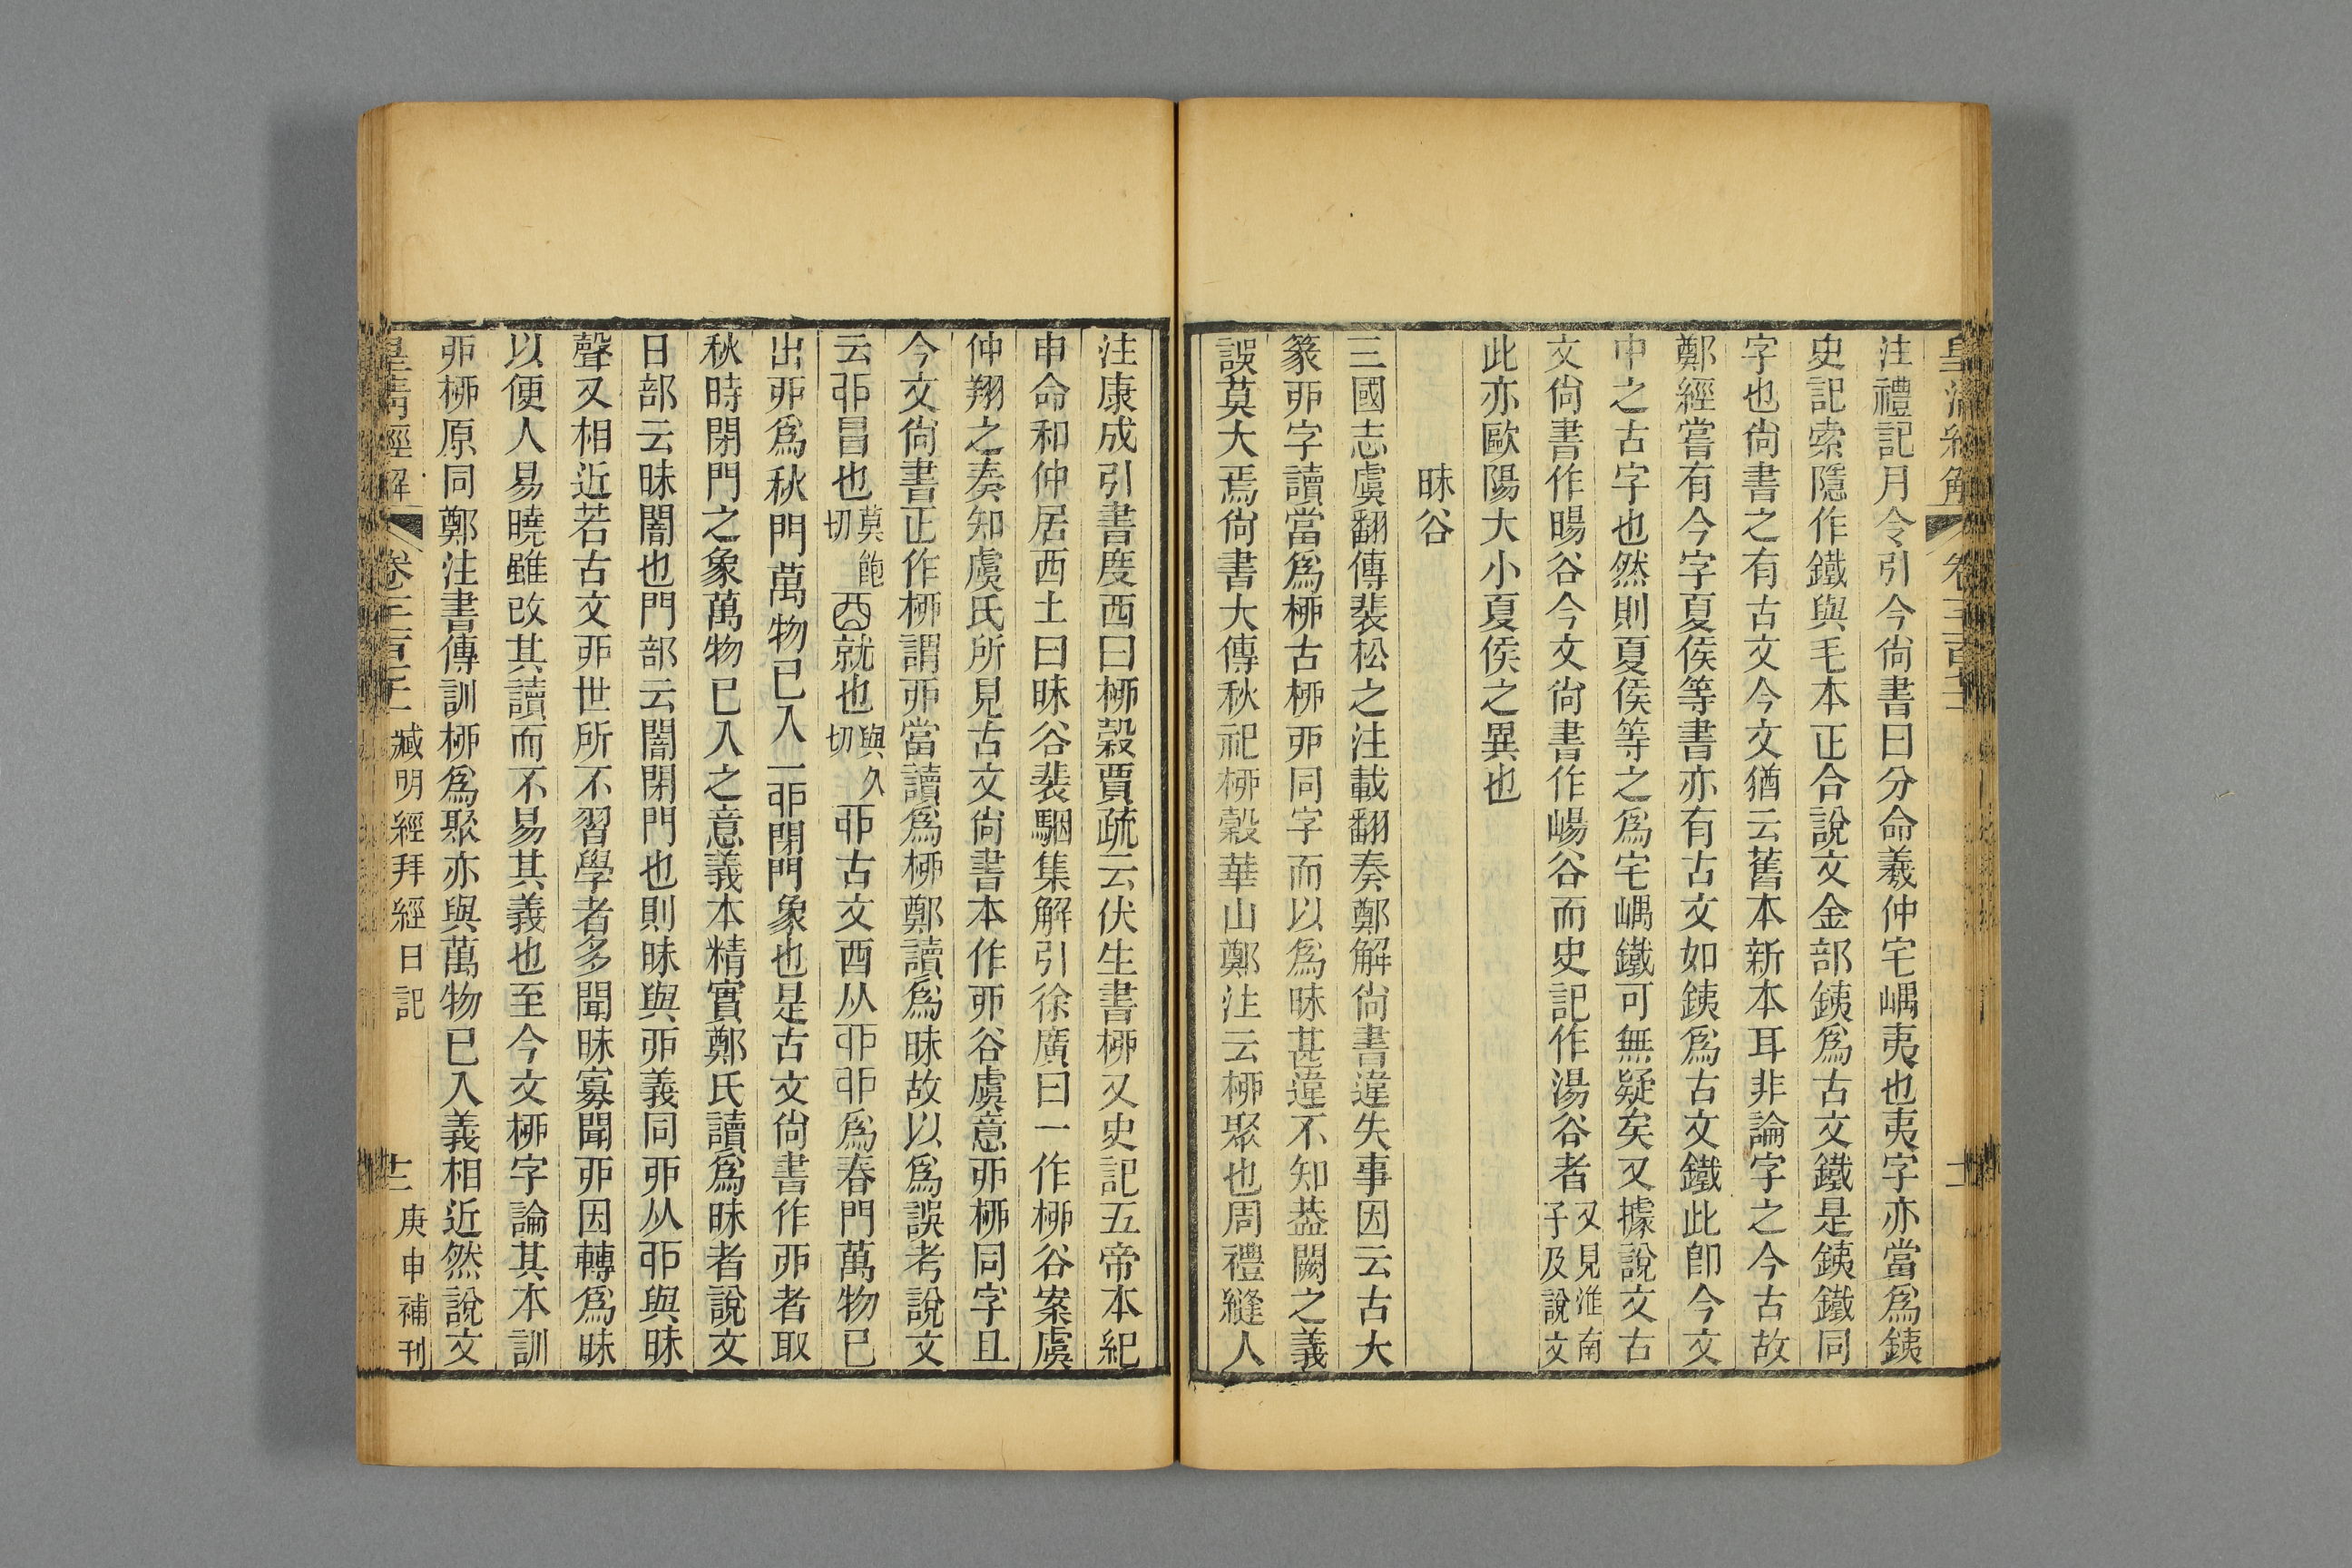 注禮記月令引今尙書曰分命羲仲宅嵎夷也夷字亦當爲銕
史記索隱作鐵與毛本正合說文金部銕爲古文鐵是銕鐵同
字也尙書之有古文今文猶云舊本新本耳非論字之今古故
鄭經嘗有今字夏侯等書亦有古文如銕爲古文鐵此卽今文
中之古字也然則夏侯等之爲宅嵎鐵可無疑矣又據說文古
文尙書作暘谷今文尙書作崵谷而史記作湯谷者又見淮南子及說文
此亦歐陽大小夏侯之異也
昧谷
三國志虞翻傳裴松之注載翻奏鄭解尙書違失事因云古大
篆戼字讀當爲桺古桺戼同字而以爲昧甚違不知葢闕之義
誤莫大焉尙書大傳秋祀桺穀華山鄭注云桺聚也周禮縫人
注康成引書度西曰桺穀賈疏云伏生書桺又史記五帝本紀
申命和仲居西土曰昧谷裴駰集解引徐廣曰一作桺谷案虞
仲翔之奏知虞氏所見古文尙書本作戼谷虞意戼桺同字且
今文尙書正作桺謂戼當讀爲桺鄭讀爲昧故以爲誤考說文
云丣昌也莫飽切酉就也與久切丣古文酉从丣丣爲春門萬物已
出戼爲秋門萬物已入一丣閉門象也是古文尙書作戼者取
秋時閉門之象萬物已入之意義本精實鄭氏讀爲昧者說文
日部云昧闇也門部云闇閉門也則昧與戼義同戼从丣與昧
聲又相近若古文戼世所不習學者多聞昧寡聞戼因轉爲昧
以便人易曉雖改其讀而不易其義也至今文桺字論其本訓
戼桺原同鄭注書傳訓桺爲聚亦與萬物已入義相近然說文
皇清經解
臧明經拜經日記
庚申補刊